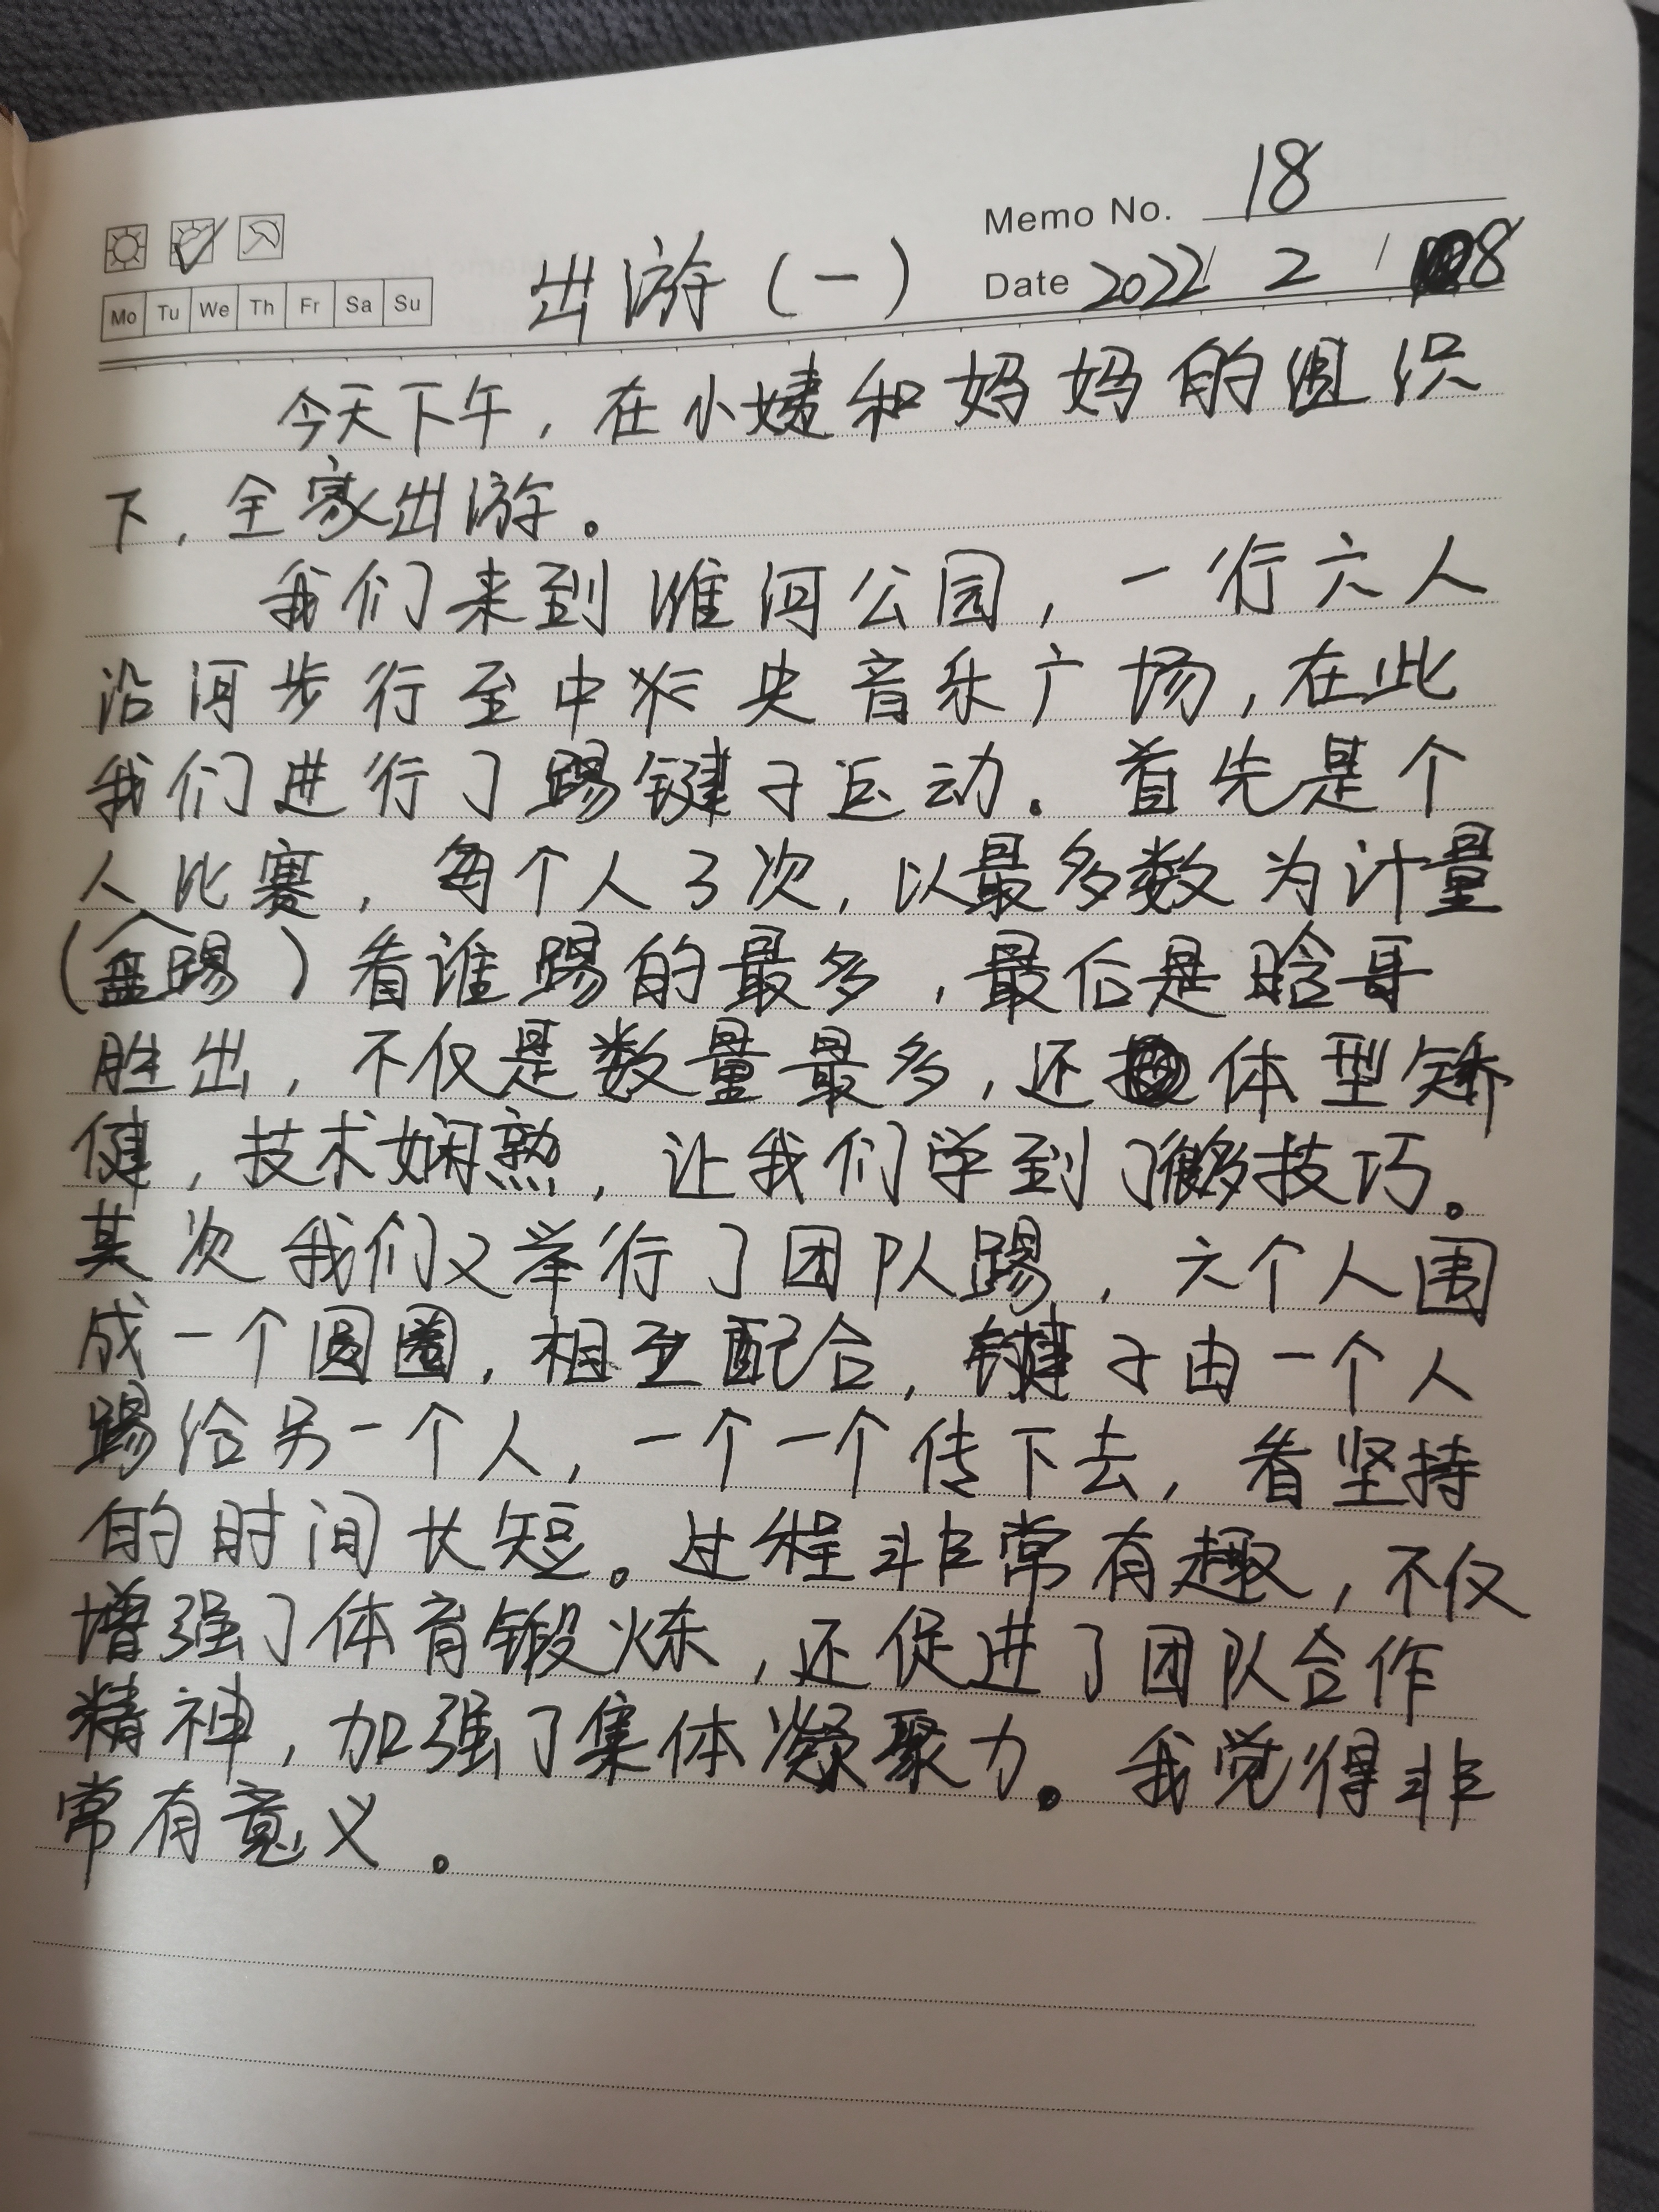 Memo No. 18
Mo Tu We Th Fr Sa Su
出游(一)
Date 2022 / 2 / 8
今天下午,在小姨和妈妈的组织
下,全家出游。
我们来到淮河公园,一行六人
沿河步行至中央音乐广场,在此
我们进行了踢键子运动。首先是个
人比赛,每个人3次,以最多数为计量
(盘踢)看谁踢的最多,最后是晗哥
胜出,不仅是数量最多,还体型矫
健,技术娴熟,让我们学到了很多技巧。
其次我们又举行了团队踢,六个人围
成一个圆圈,相互配合,键子由一个人
踢给另一个人,一个一个传下去,看坚持
的时间长短。过程非常有趣,不仅
增强了体育锻炼,还促进了团队合作
精神,加强了集体凝聚力。我觉得非
常有意义。